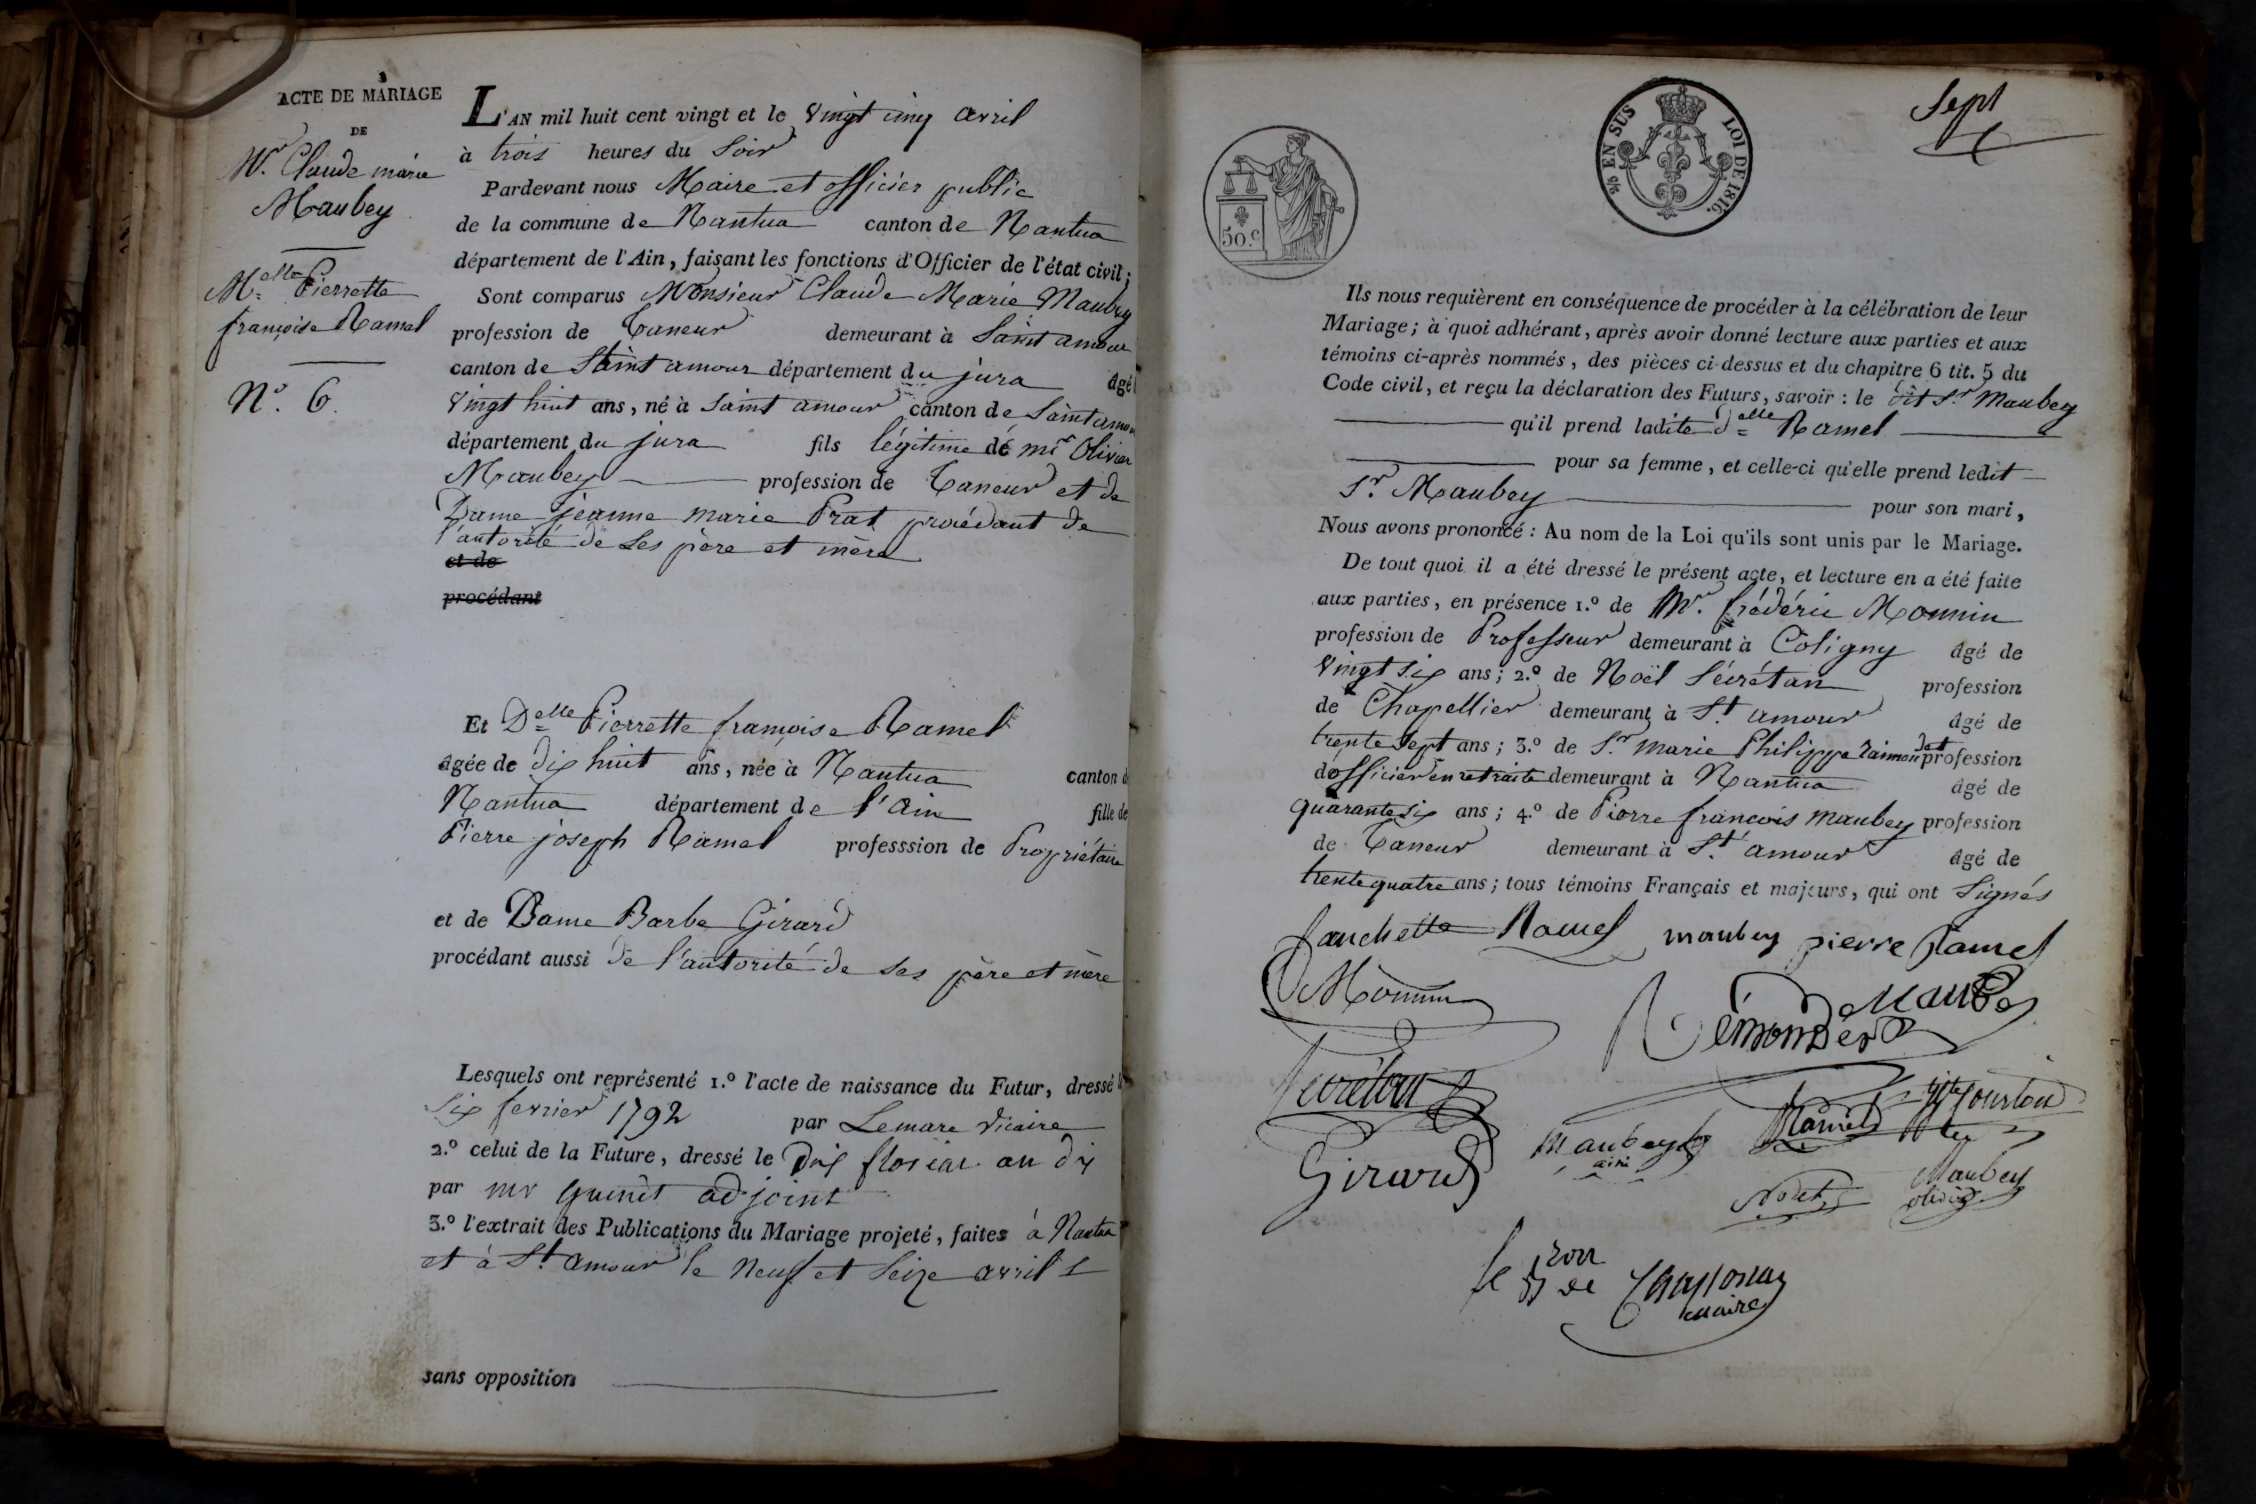 ACTE DE MARIAGE
DE
Mr. Claude marie
Maubey
Melle Pierrette
françoise Ramel
N°. 6.
L'AN mil huit cent vingt et le vingt cinq avril
à trois heures du soir
Pardevant nous Maire et officier public
de la commune de Nantua canton de Nantua
département de l'Ain, faisant les fonctions d'Officier de l'état civil;
Sont comparus Monsieur Claude Marie Maubey
profession de Taneur demeurant à Saint amour
canton de Saint amour département du jura âgé
vingt huit ans, né à saint amour canton de Saint amour
département du jura fils légitime de mr Olivier
Maubey profession de Taneur et de
Dame jeanne marie Prat procédant de
l'autorité de ses père et mère
et de
procédant
Et Delle Pierrette françoise Ramel
âgée de dix huit ans, née à Nantua canton d
Nantua département de l'ain fille de
Pierre joseph Ramel professsion de Propriétaire
et de Dame Barbe Girard
procédant aussi de l'autorité de ses père et mère
Lesquels ont représenté 1.° l'acte de naissance du Futur, dressé le
six fevrier 1792 par Lemare vicaire
2.° celui de la Future, dressé le Dix floréal an dix
par mr Guinet adjoint
3.° l'extrait des Publications du Mariage projeté, faites à Nantua
et à St. amour le neuf et seize avril
sans opposition
Sept
2/5 EN SUS LOI DE 1816.
50.c
Ils nous requièrent en conséquence de procéder à la célébration de leur
Mariage; à quoi adhérant, après avoir donné lecture aux parties et aux
témoins ci-après nommés, des pièces ci-dessus et du chapitre 6 tit. 5 du
Code civil, et reçu la déclaration des Futurs, savoir : le dit Sr Maubey
qu'il prend ladite delle Ramel
pour sa femme, et celle-ci qu'elle prend ledit
Sr. Maubey pour son mari,
Nous avons prononcé : Au nom de la Loi qu'ils sont unis par le Mariage.
De tout quoi il a été dressé le présent acte, et lecture en a été faite
aux parties, en présence 1.° de Mr. frédéric Monnin
profession de Professeur demeurant à Coligny âgé de
vingt six ans; 2.° de Noël Sécrétan profession
de Chapellier demeurant à St. amour âgé de
trente sept ans; 3.° de Sr marie Philippe profession
d'officier en retraite demeurant à Nantua âgé de
quarante six ans; 4.° de Pierre françois maubey profession
de Taneur demeurant à St. amour âgé de
trente quatre ans; tous témoins Français et majeurs, qui ont signés
fanchette Ramel maubey pierre Ramel
Monnin Maubey
Sécrétan
Girard maubey ainé Ramel
Maubey olivier
le Bon de
maire